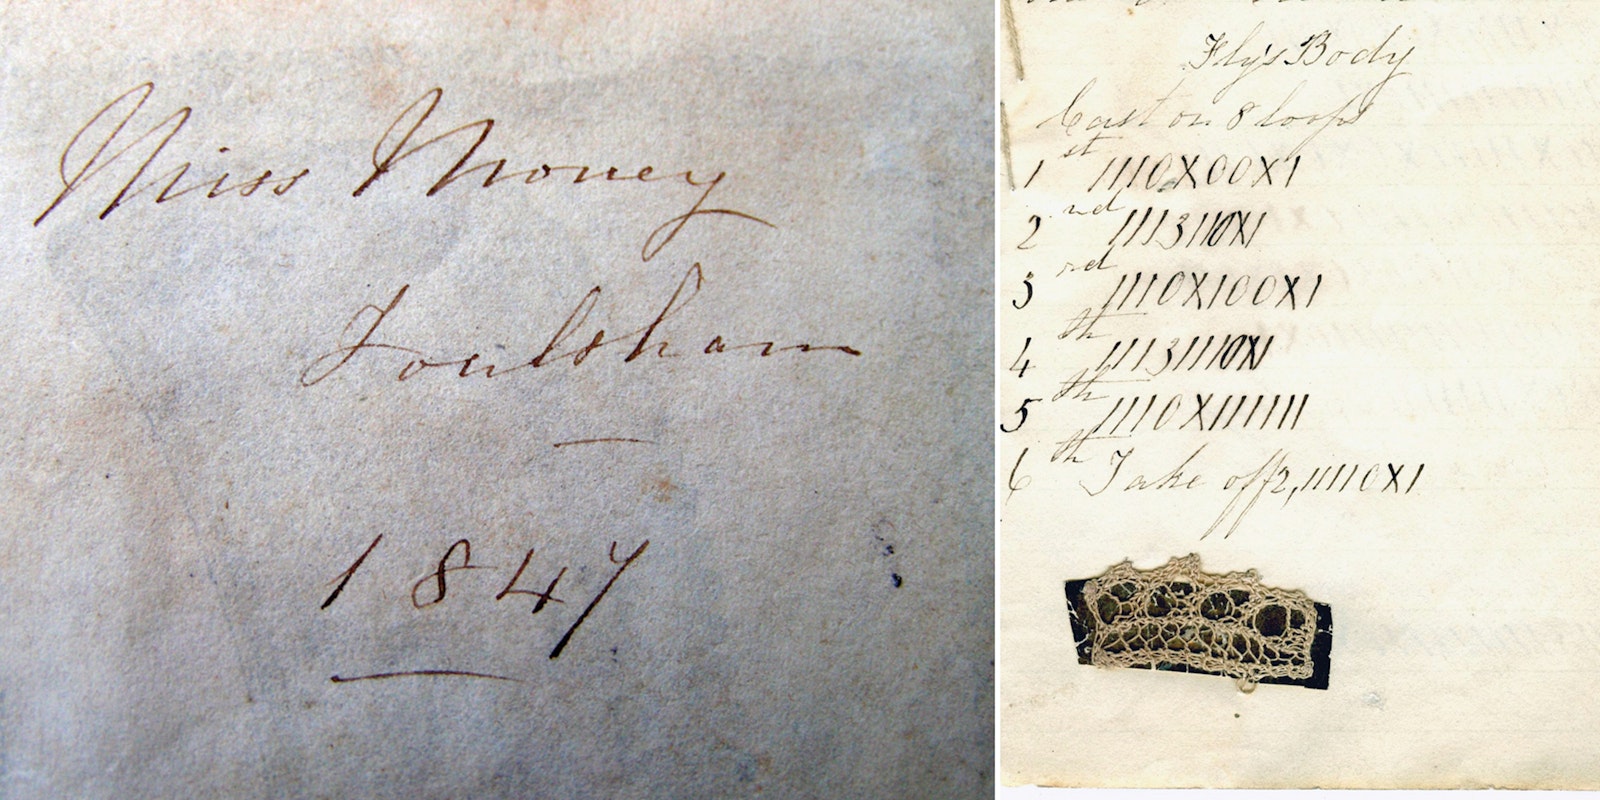 Miss Money
Foulsham
1847
Fly's Body
Cast on 8 loops
1st 1110X00X1
2nd 1113110X1
3rd 1110X100X1
4th 11131110X1
5th 1110X111111
6th Take off 2, 11110X1